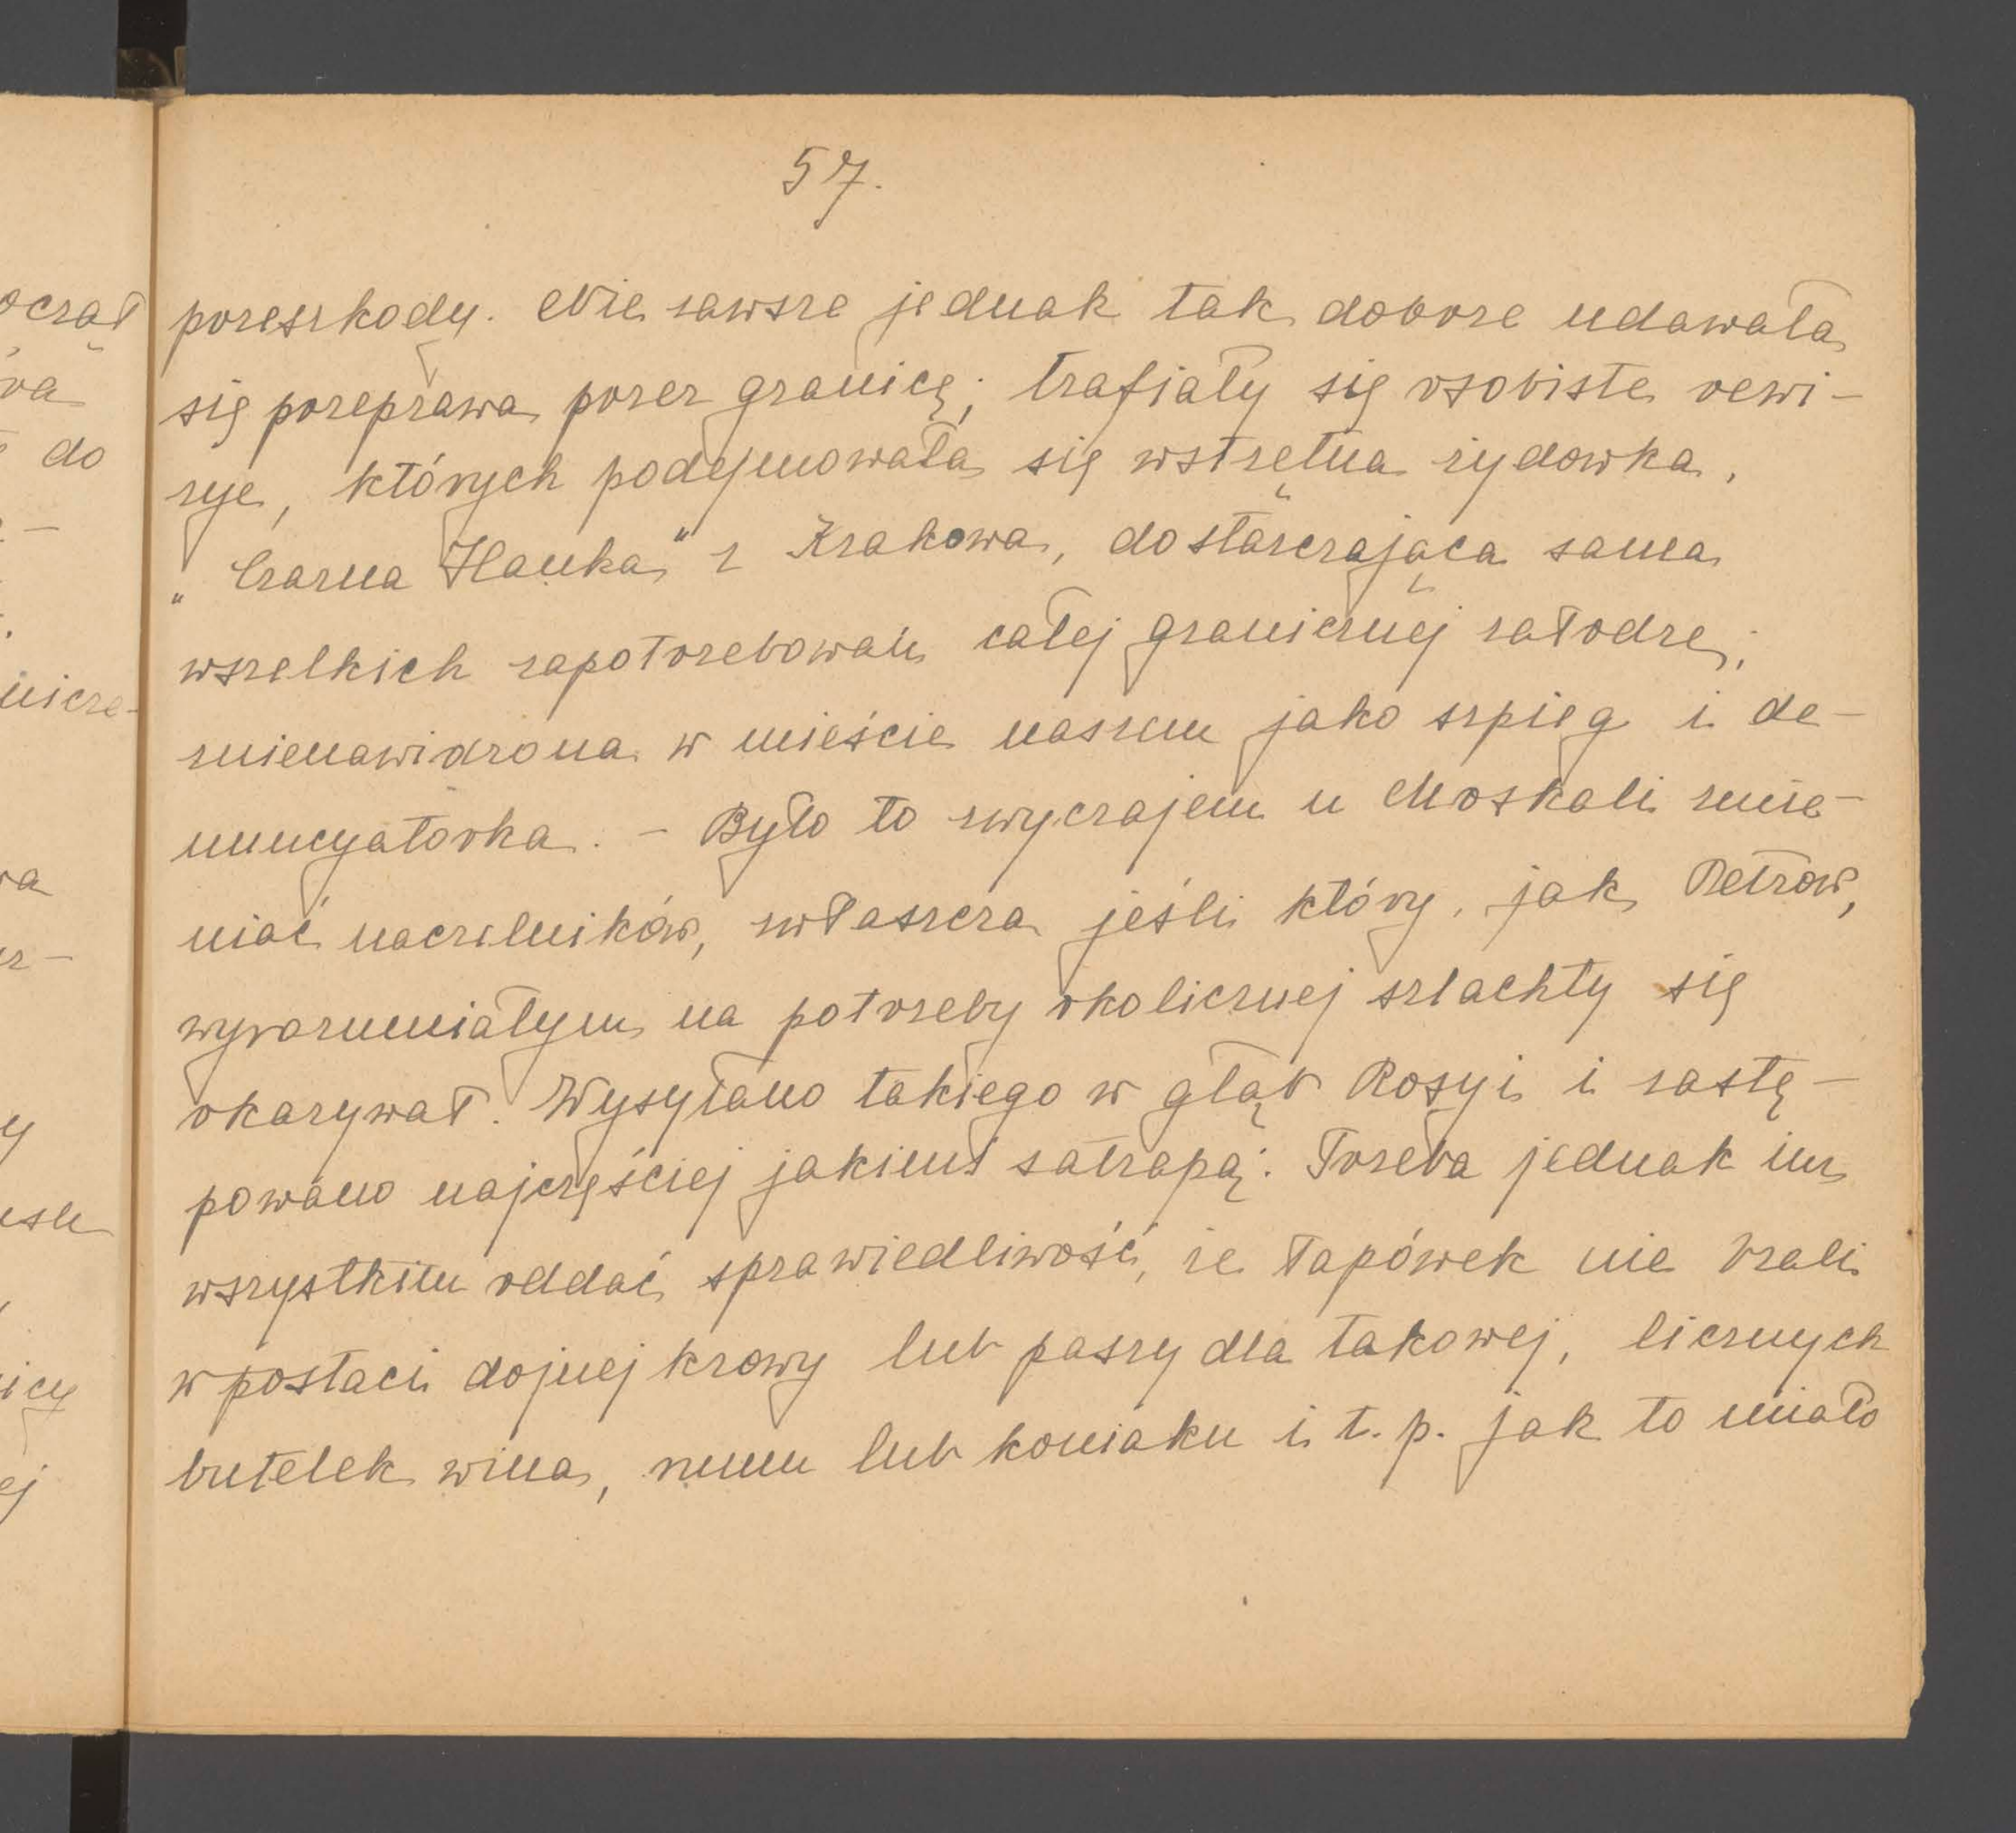 57.
przeszkody. Nie zawsze jednak tak dobrze udawała
się przeprawa przez granicę; trafiały się osobiste rewi-
zje, których podejmowała się wstrętna żydowka,
„Czarna Hanka" z Krakowa, dostarczająca sama
wszelkich zapotrzebowań całej granicznej załodze;
znienawidzona w mieście naszem jako szpieg i de-
nuncyatorka. - Było to zwyczajem u Moskali zmie-
niać naczelników, zwłaszcza jeśli który, jak Petrow,
wyrozumiałym na potrzeby okolicznej szlachty się
okazywał. Wysyłano takiego w głąb Rosyi i zastę-
powano najczęściej jakimś satrapą. Trzeba jednak im
wszystkim oddać sprawiedliwość, że łapówek nie brali
w postaci dojnej krowy lub paszy dla takowej, licznych
butelek wina, rumu lub koniaku i t. p. jak to miało
do